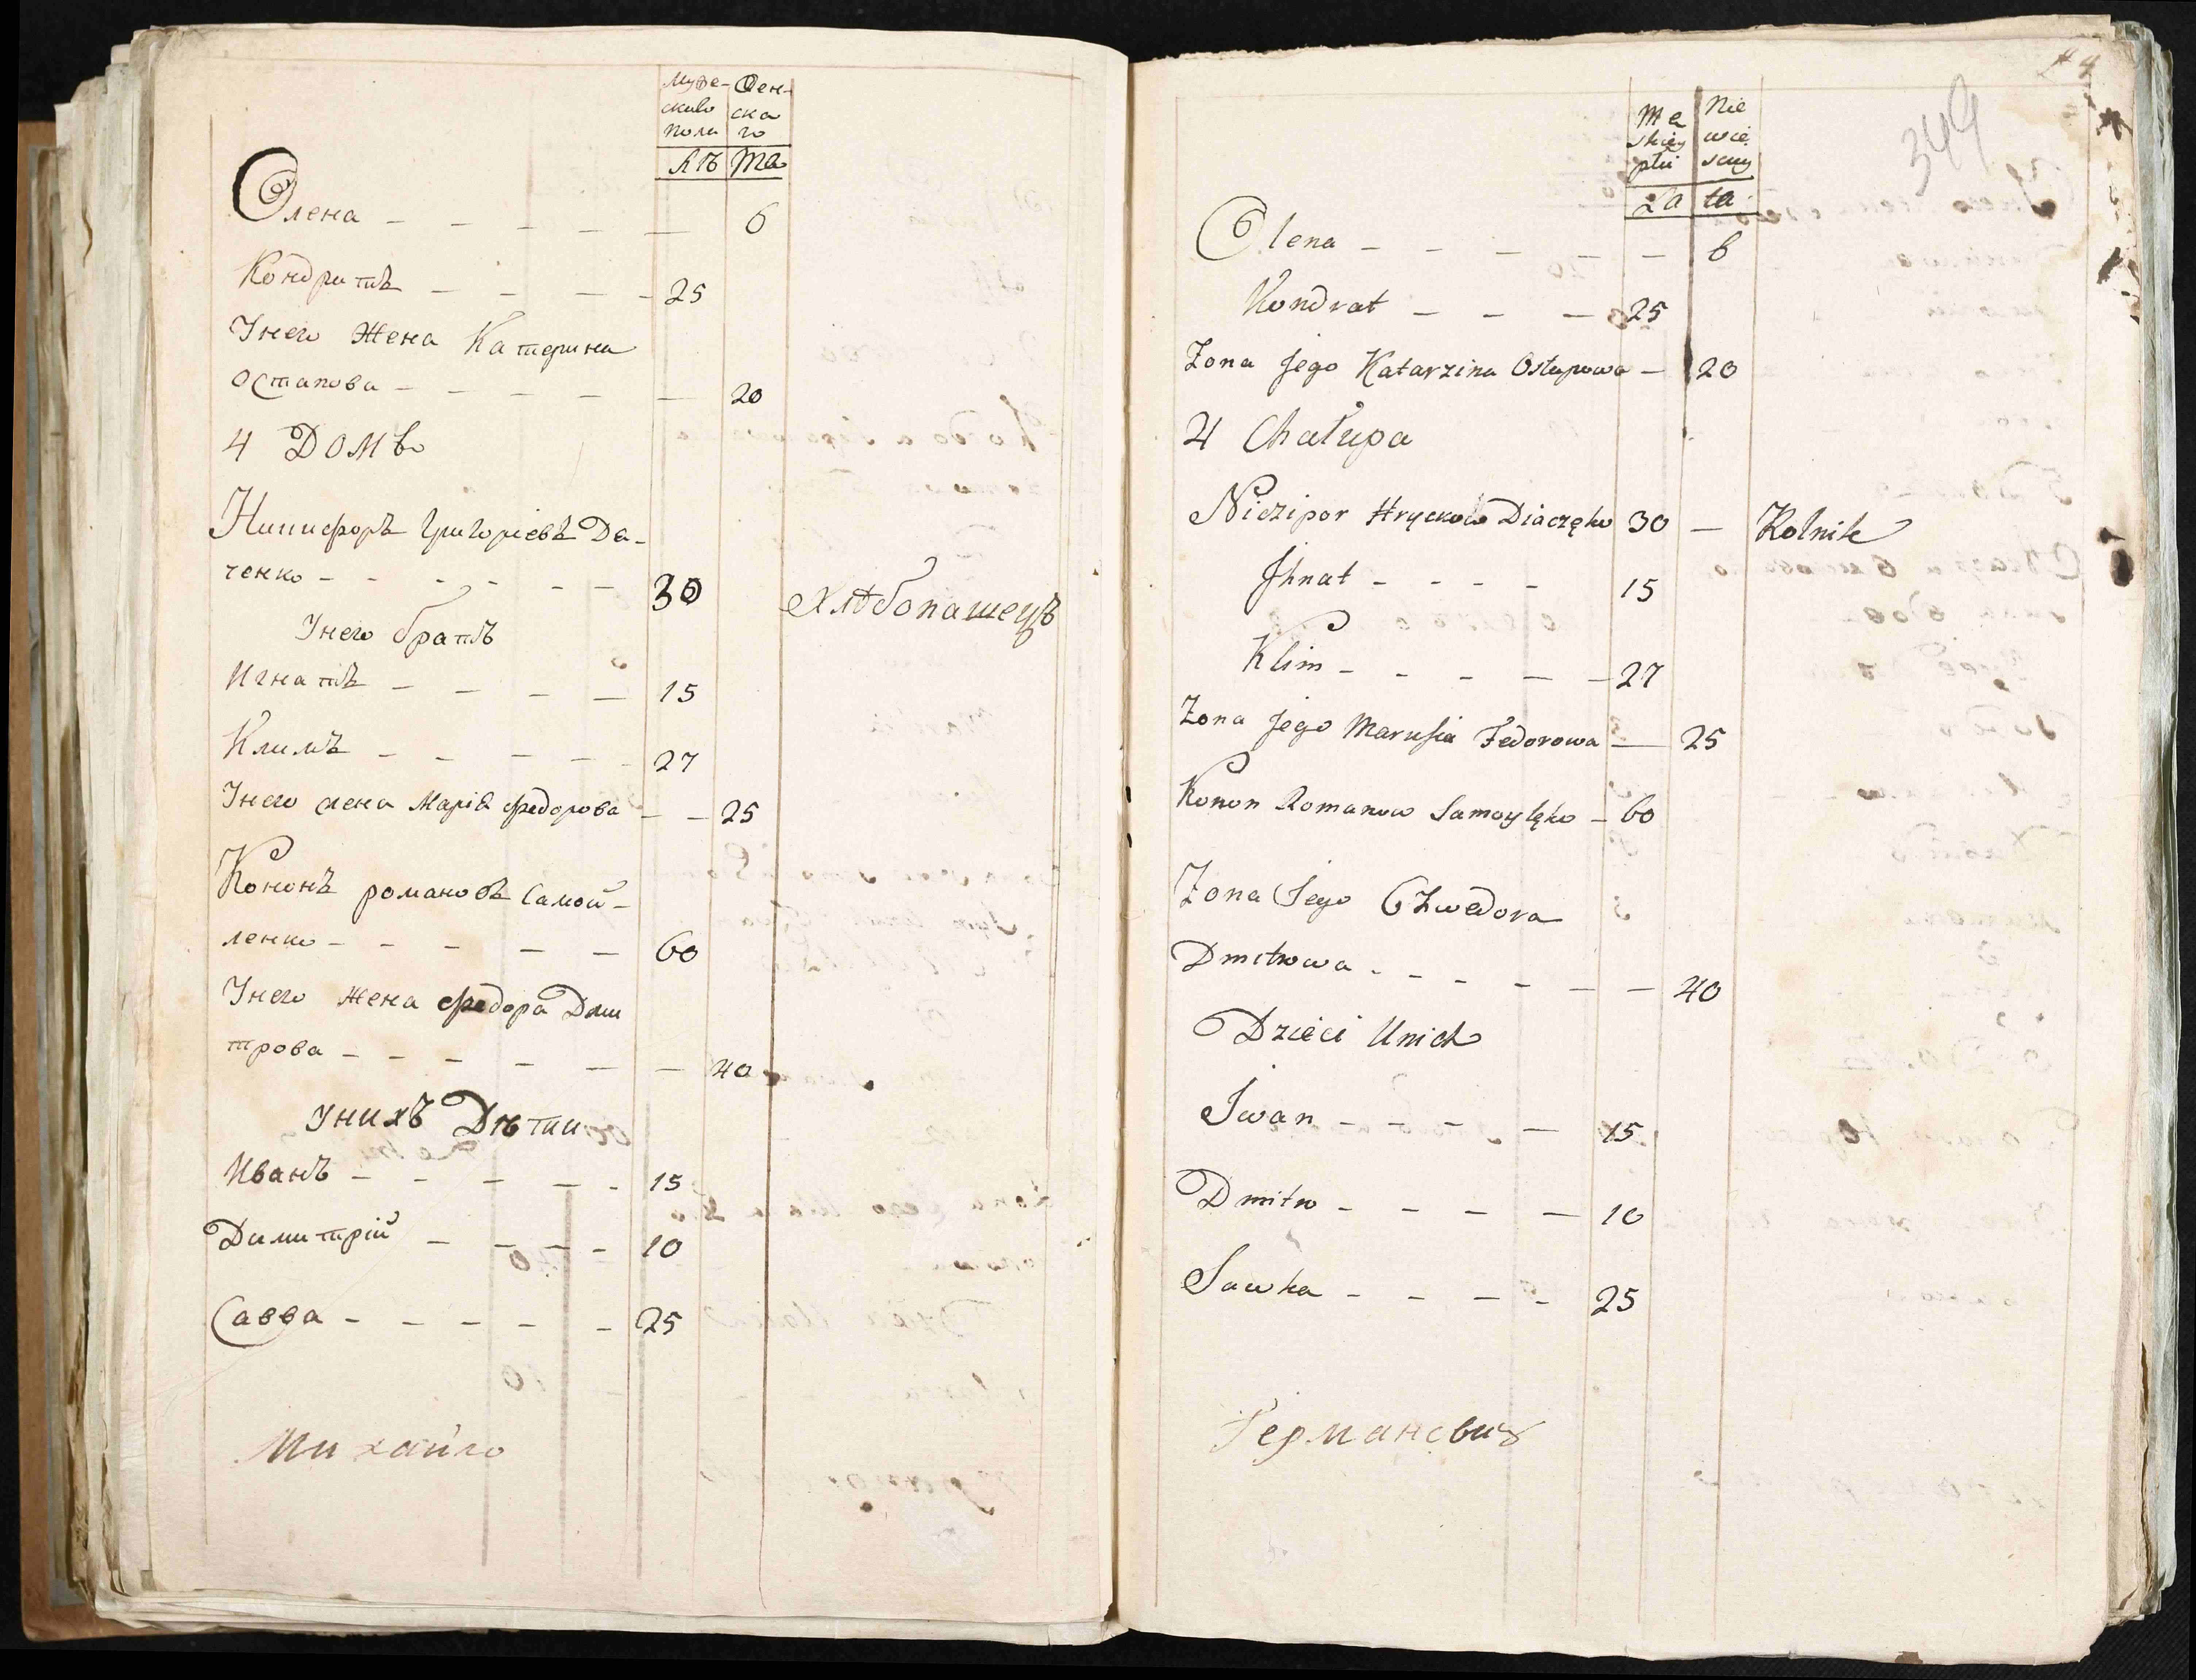 Муже- Женъ-
скаго ска
пола го
Лѣ та
Олена - - - - - 6
Кондратъ - - - - 25
Унего Жена Катерина
Остапова - - - - - 20
4 Домъ
Никифоръ Григоріевъ Дя-
ченко - - - - - - 30 Хлѣбопашецъ
Унего братъ
Игнатъ - - - - 15
Климъ - - - - - 27
Унего жена Марія Федорова - - 25
Кононъ романовъ Самой-
ленко - - - - - 60
Унего жена Федора Дми
трова - - - - - - 40
Унихъ Дѣти
Иванъ - - - - - 15
Димитрій - - - - 10
Савва - - - - - 25
Михайло
4
349
Mę Nie
skiey wie
płci sciey
La ta
Olena - - - - - 6
Kondrat - - - 25
Żona Jego Katarzina Ostapowa - 20
4 Chałupa
Niczipor Hryckow Diaczęko 30 - Rolnik
Jhnat - - - - 15
Klim - - - - - 27
Żona Jego Marusia Fedorowa - 25
Konon Romanow Samoylęko - 60
Żona Jego Chwedora
Dmitrowa - - - - - - 40
Dzieci Unich
Jwan - - - - - 15
Dmitro - - - - 10
Sawka - - - - 25
Германович